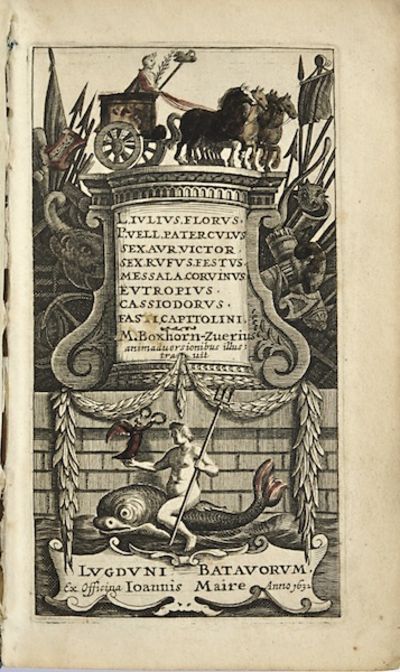 L. IVLIVS. FLORVS.
P. VELL. PATERCVLVS
SEX. AVR. VICTOR.
SEX. RVFVS. FESTVS.
MESSALA. CORVINVS
EVTROPIVS.
CASSIODORVS.
FASTI. CAPITOLINI.
M. Boxhorn-Zuerius
animadversionibus illus:
travit
LVGDVNI BATAVORVM.
Ex Officina Ioannis Maire Anno 1632